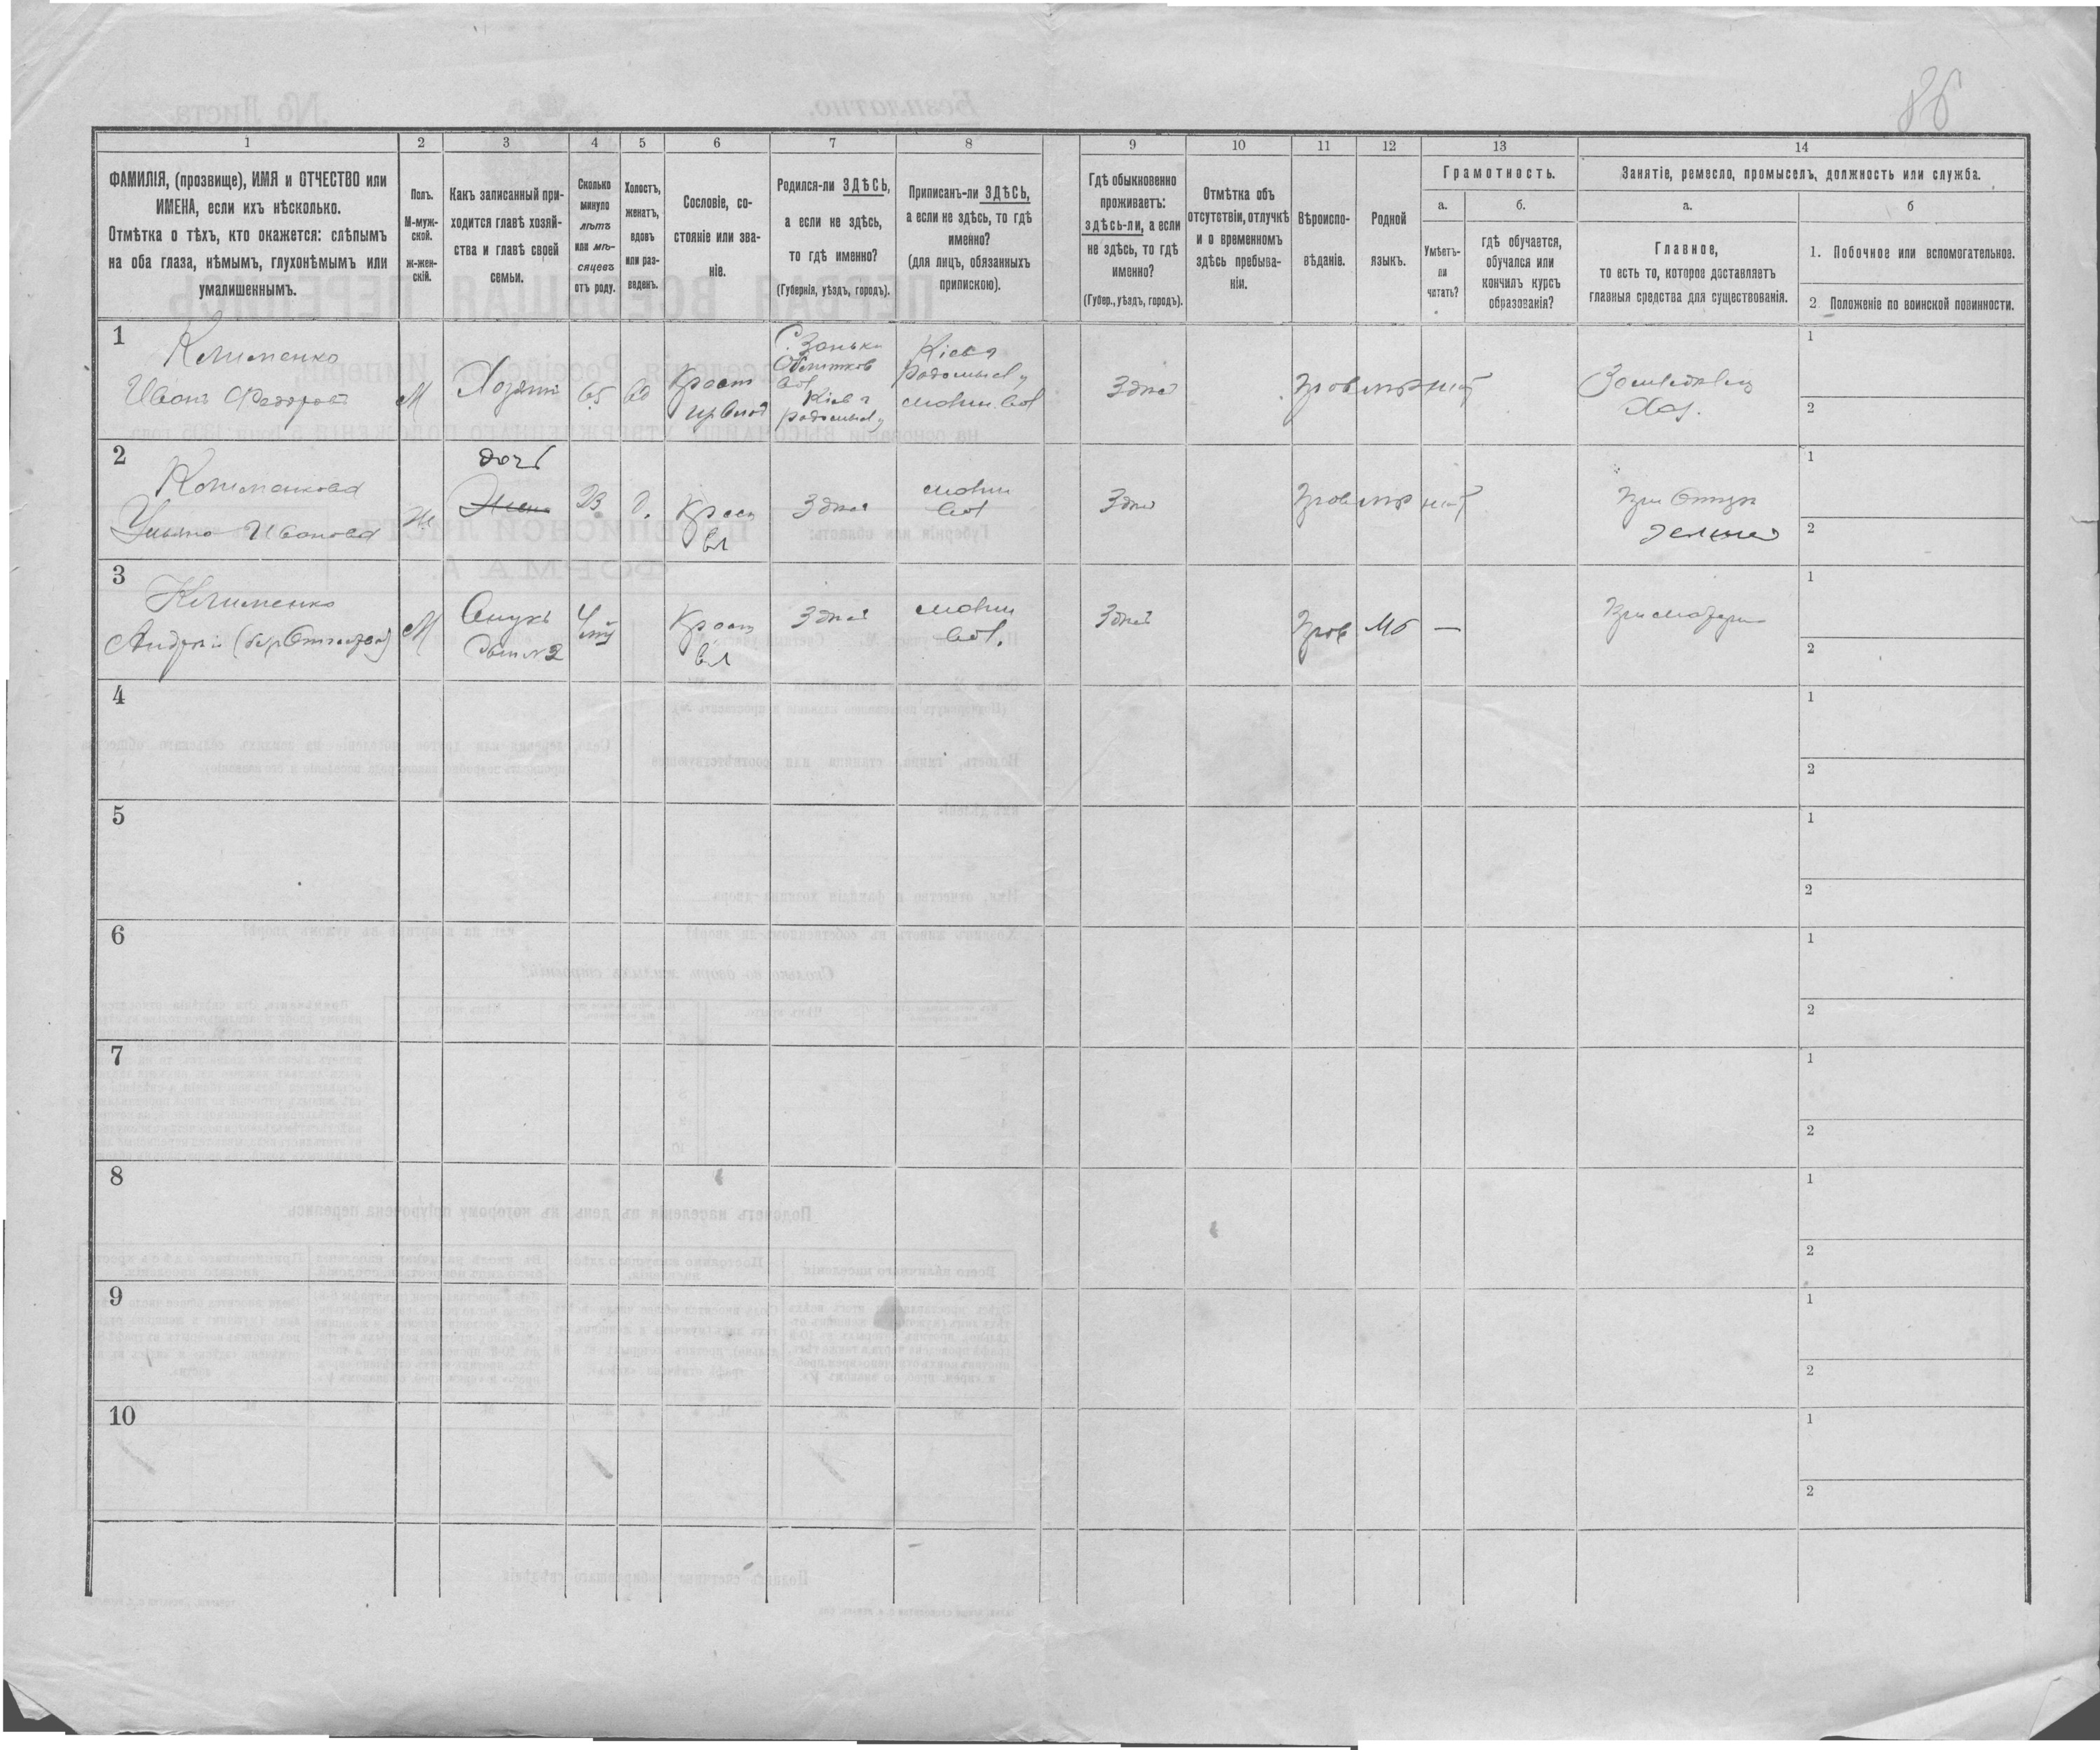 86
1
2
3
4
5
6
7
8
9
10
11
12
13
14
ФАМИЛІЯ, (прозвище), ИМЯ и ОТЧЕСТВО или
ИМЕНА, если ихъ нѣсколько.
Отмѣтка о тѣхъ, кто окажется: слѣпымъ
на оба глаза, нѣмымъ, глухонѣмымъ или
умалишеннымъ.
Полъ.
М-муж-
ской.
ж-жен-
скій.
Какъ записанный при-
ходится главѣ хозяй-
ства и главѣ своей
семьи.
Сколько
минуло
лѣтъ
или мѣ-
сяцевъ
отъ роду.
Холостъ,
женатъ,
вдовъ
или раз-
веденъ.
Сословіе, со-
стояніе или зва-
ніе.
Родился-ли ЗДѢСЬ,
а если не здѣсь,
то гдѣ именно?
(Губернія, уѣздъ, городъ).
Приписанъ-ли ЗДѢСЬ,
а если не здѣсь, то гдѣ
именно?
(для лицъ, обязанныхъ
припискою).
Гдѣ обыкновенно
проживаетъ:
здѣсь-ли, а если
не здѣсь, то гдѣ
именно?
(Губер., уѣздъ, городъ).
Отмѣтка объ
отсутствіи, отлучкѣ
и о временномъ
здѣсь пребыва-
ніи.
Вѣроиспо-
вѣданіе.
Родной
языкъ.
Грамотность.
а.
Умѣетъ-
ли
читать?
б.
гдѣ обучается,
обучался или
кончилъ курсъ
образованія?
Занятіе, ремесло, промыселъ, должность или служба.
а.
Главное,
то есть то, которое доставляетъ
главныя средства для существованія.
б
1. Побочное или вспомогательное.
2. Положеніе по воинской повинности.
1
Клименко
Иванъ Федоровъ
М
Хозяинъ
65
вд
Крест
Кіев г
Кіев г
Радомысл у
Здѣсь
Прав
мр
нѣт
Хоз.
1
2
2
Клименкова
Ульяна Иванова
Ж
дочь
Жена
23
д.
Крест
вл
Здѣсь
вол
Здѣсь
Прав
мр
нѣт
При Отцѣ
1
2
3
Клименко
Андрей (без Отчества)
М
Внукъ
Сын №2
4
Крест
вл
Здѣсь
вол.
Здѣсь
Прав
Мб
—
При матери
1
2
4
1
2
5
1
2
6
1
2
7
1
2
8
1
2
9
1
2
10
1
2